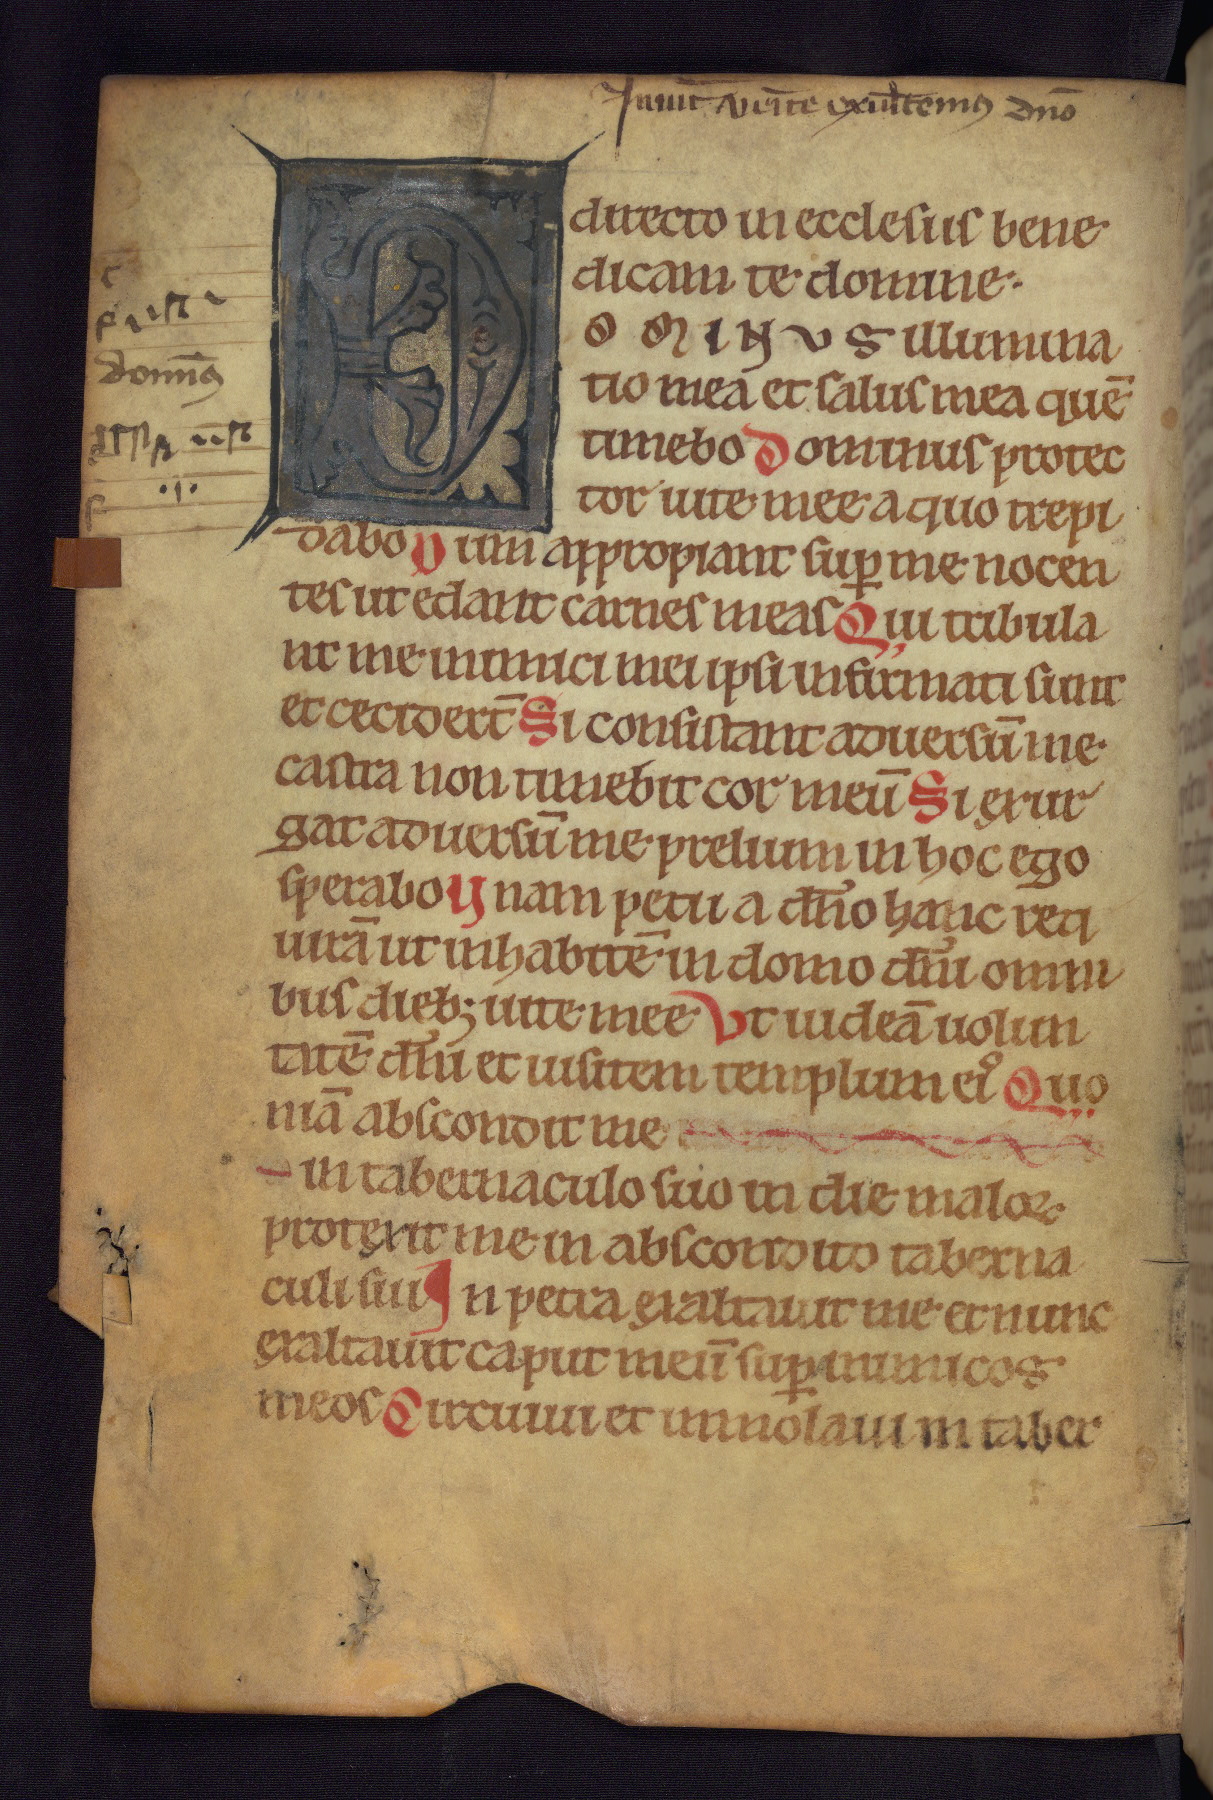 Inuit. Venite exultemus dno
directo in ecclesiis bene
dicam te domine.
DOMINVS illumina
tio mea et salus mea quē
timebo Dominus protec
tor uite mee a quo trepi
dabo Dum appropiant sup me nocen
tes ut edant carnes meas Qui tribula
nt me inimici mei ipsi infirmati sunt
et ceciderūt Si consistant aduersū me
castra non timebit cor meū Si exur
gat aduersū me prelium in hoc ego
sperabo Vnam petii a dn̄o hanc req
uirā ut inhabitē in domo dn̄i omni
bus dieb; uite mee Vt uideā uolun
tatē dn̄i et uisitem templum ei᾿ Quo
niā abscondit me
in tabernaculo suo in die maloꝝ
protexit me in abscondito taberna
culi sui In petra exaltauit me et nunc
exaltauit caput meū sup inimicos
meos Circuiui et immolaui in taber
domin᾿